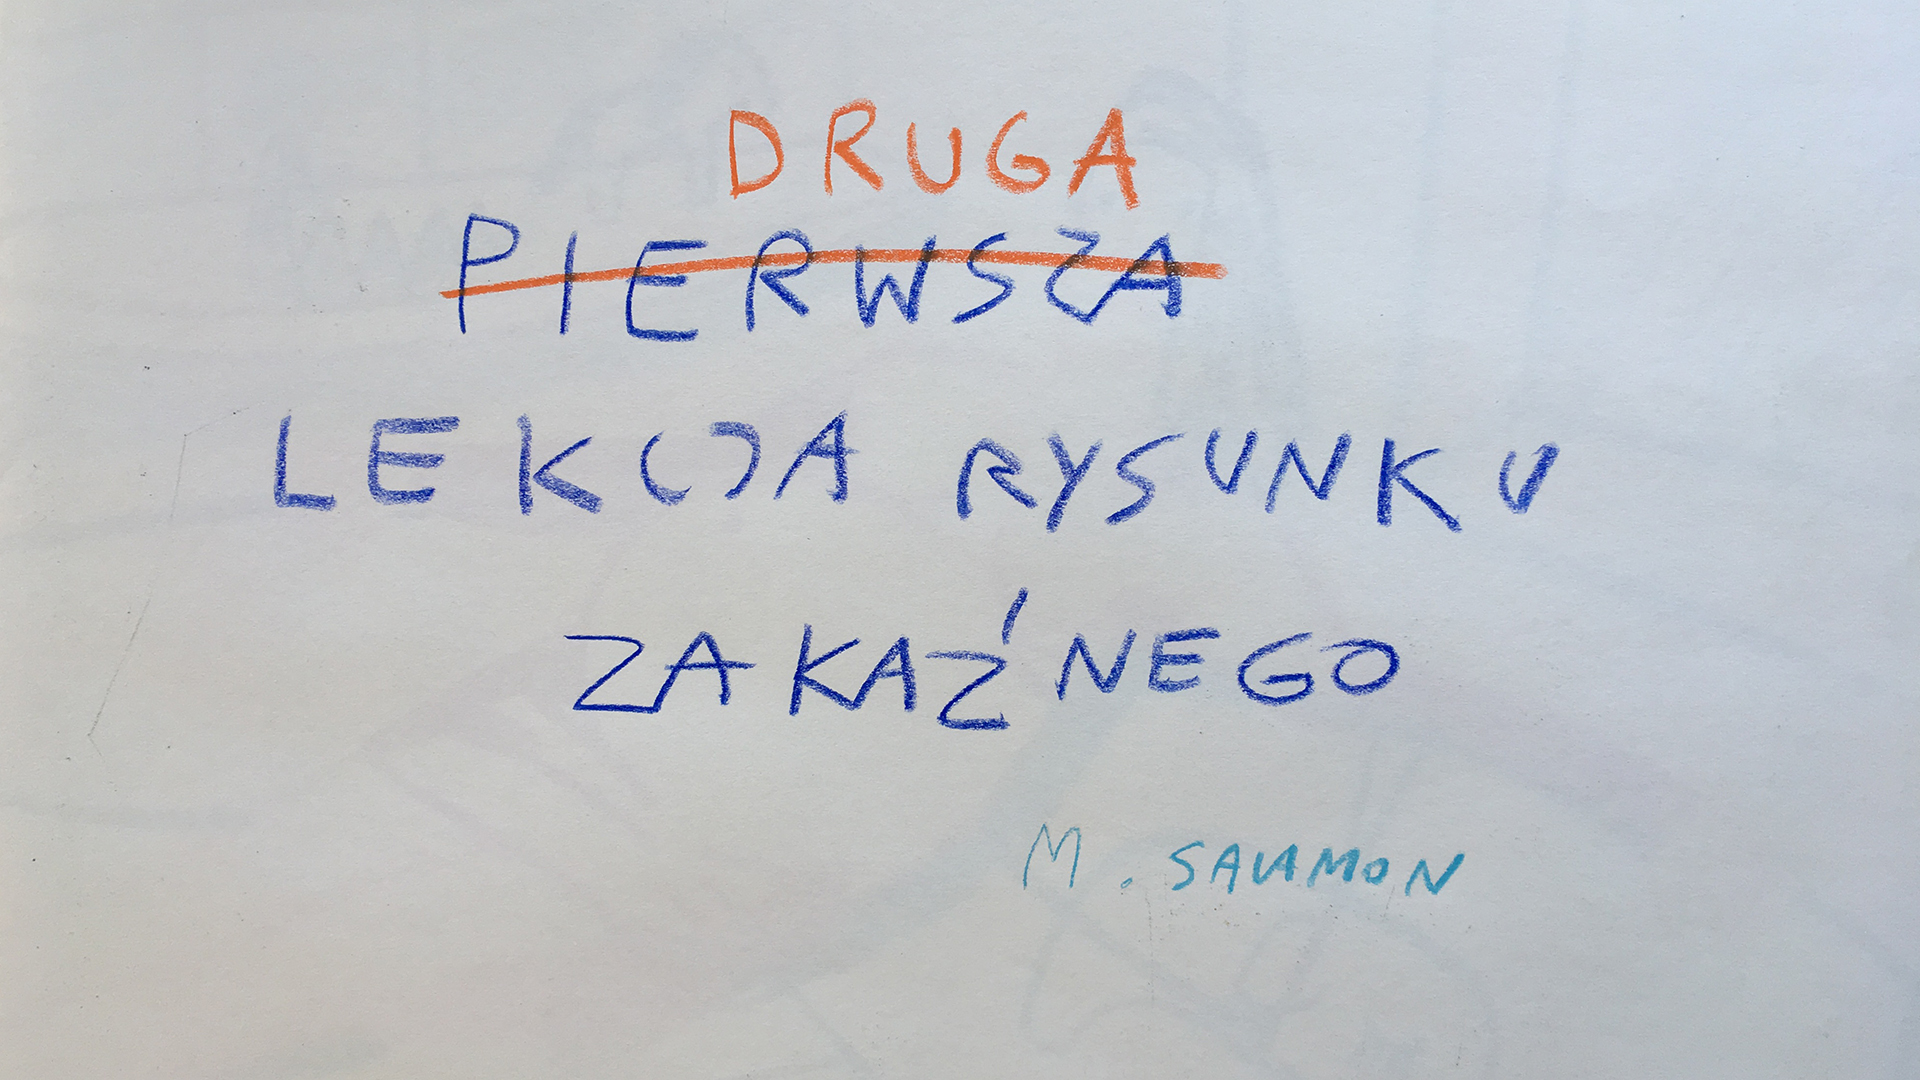 DRUGA
PIERWSZA
LEKCJA RYSUNKU
ZAKAŹNEGO
M. SALAMON